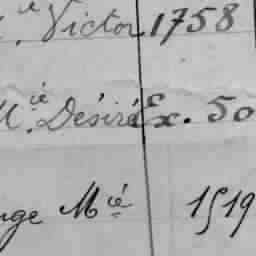 ié Victor 1758
M.ié Désiré Ex. 50
nge Mié 1519